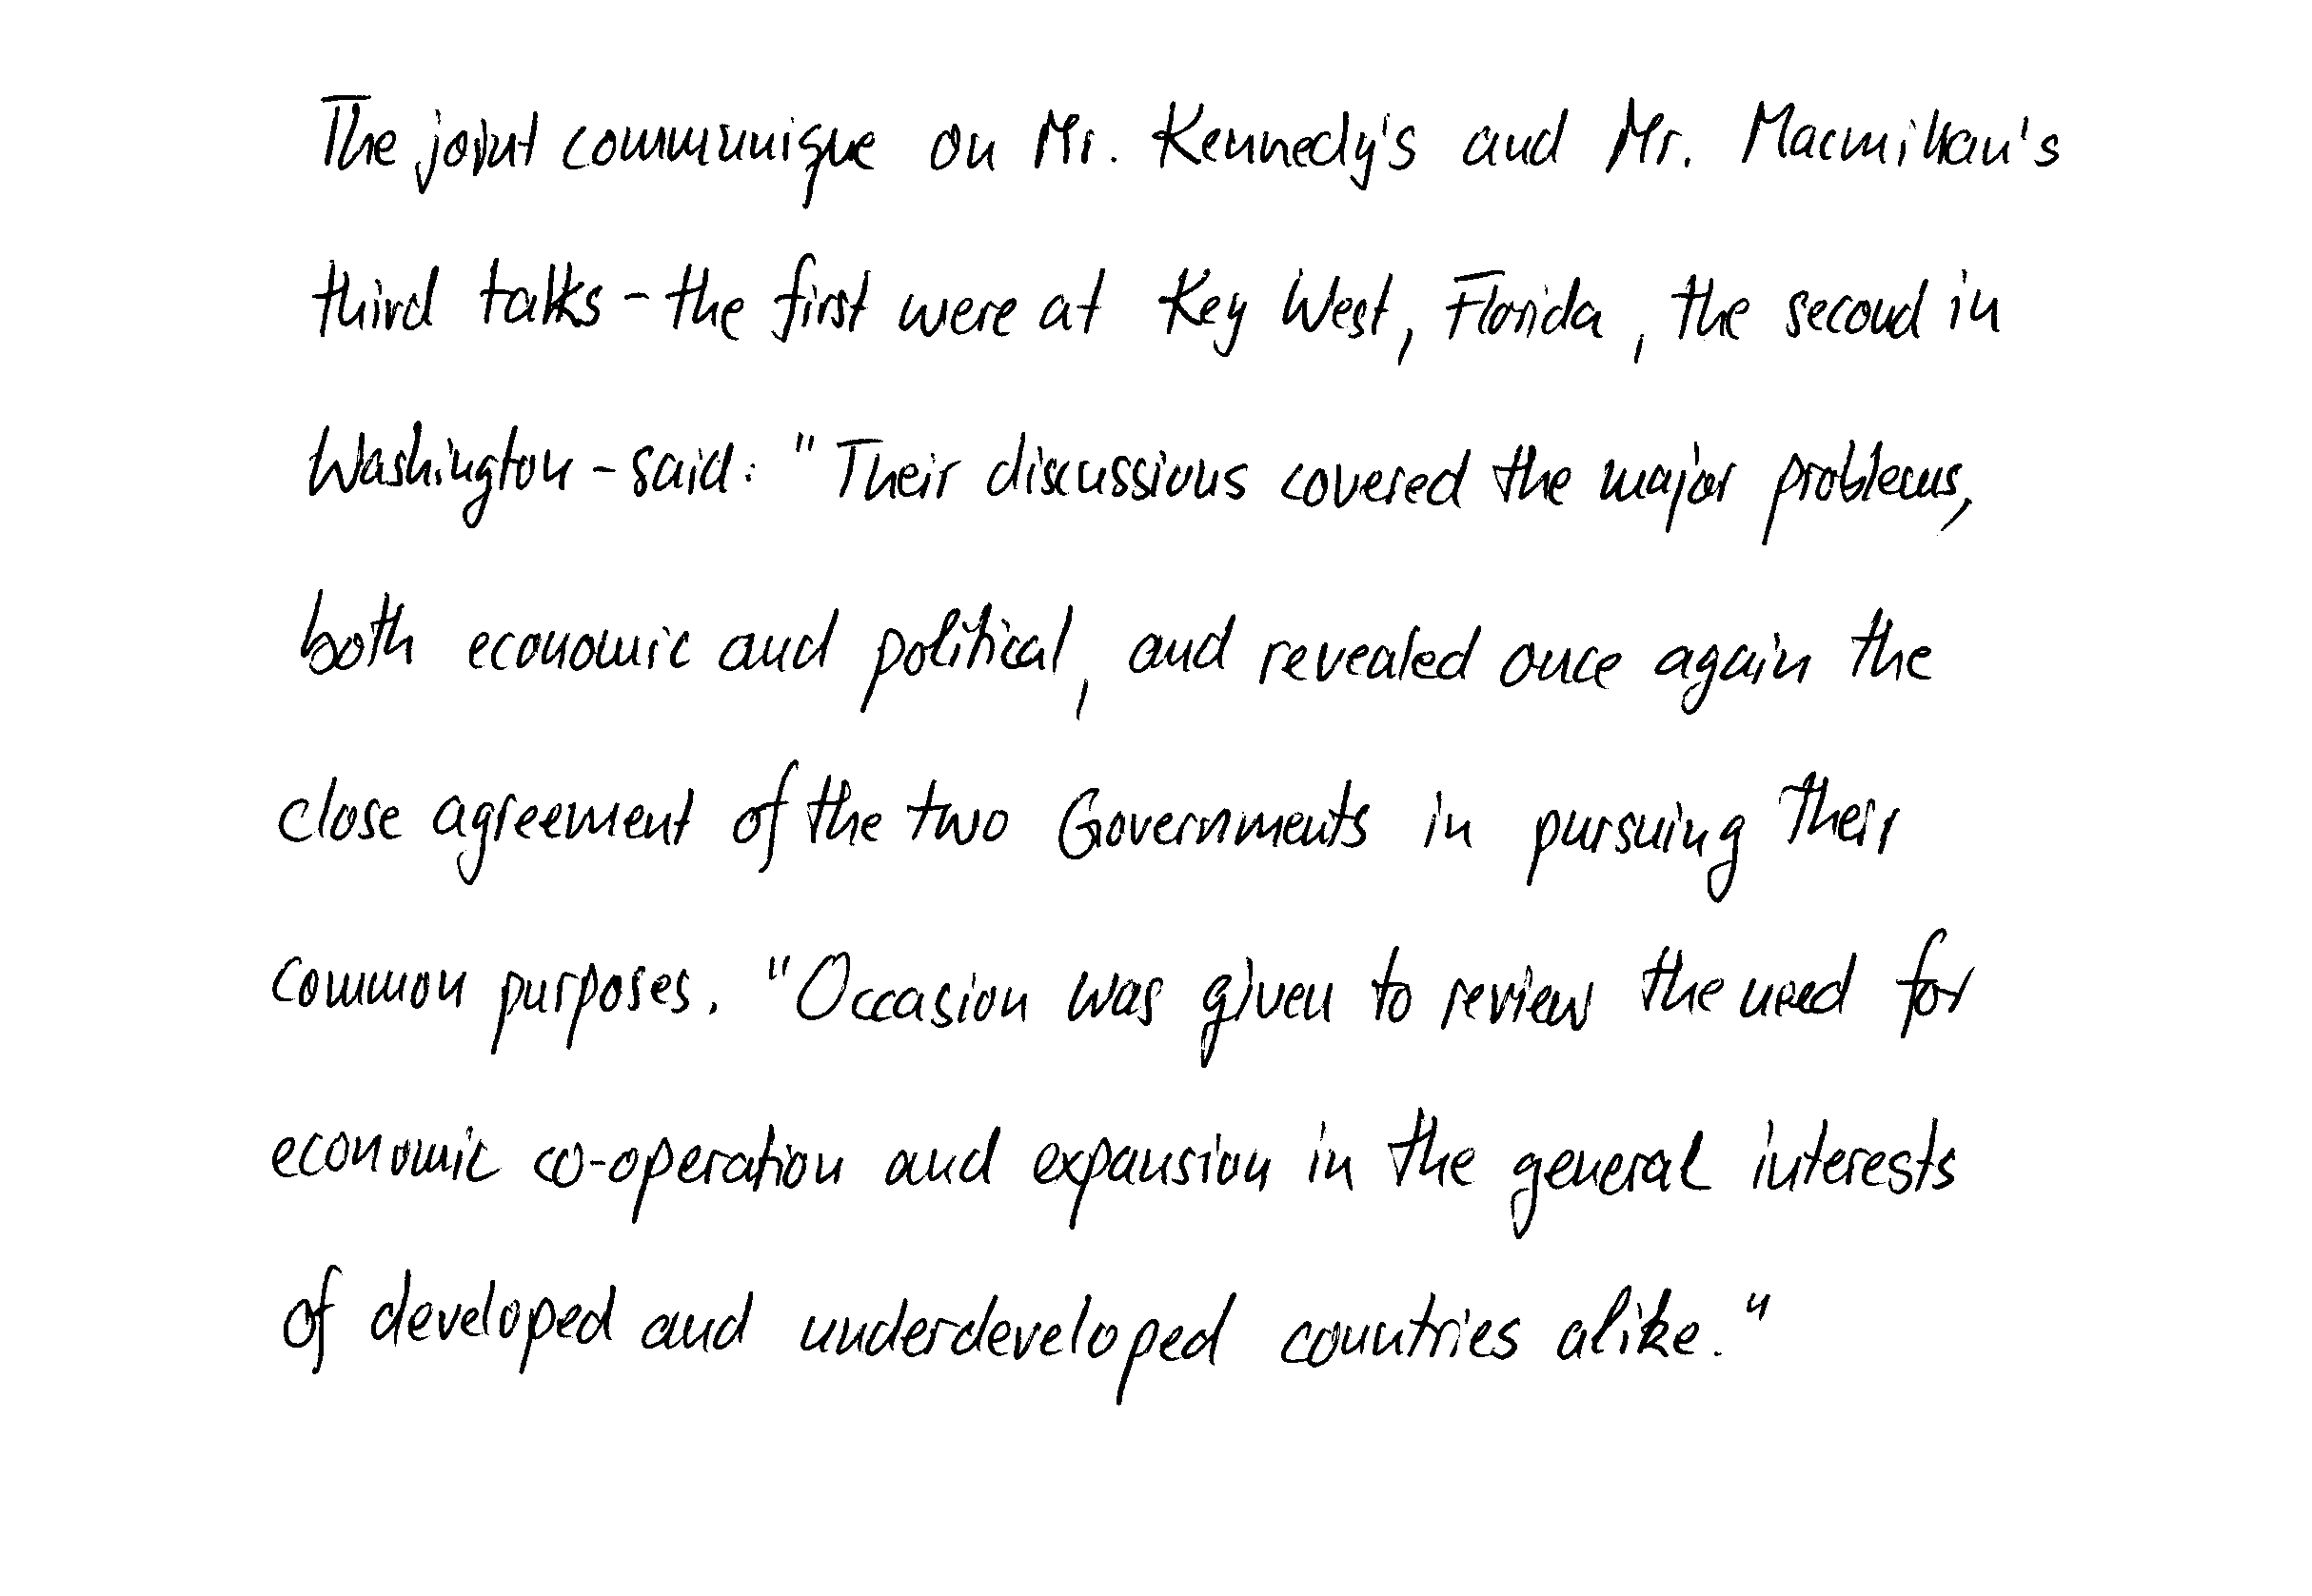 The joint communique on Mr. Kennedy's and Mr. Macmillan's
third talks - the first were at Key West, Florida, the second in
Washington - said: "Their discussions covered the major problems,
both economic and political, and revealed once again the
close agreement of the two Governments in pursuing their
common purposes. "Occasion was given to review the need for
economic co-operation and expansion in the general interests
of developed and underdeveloped countries alike."